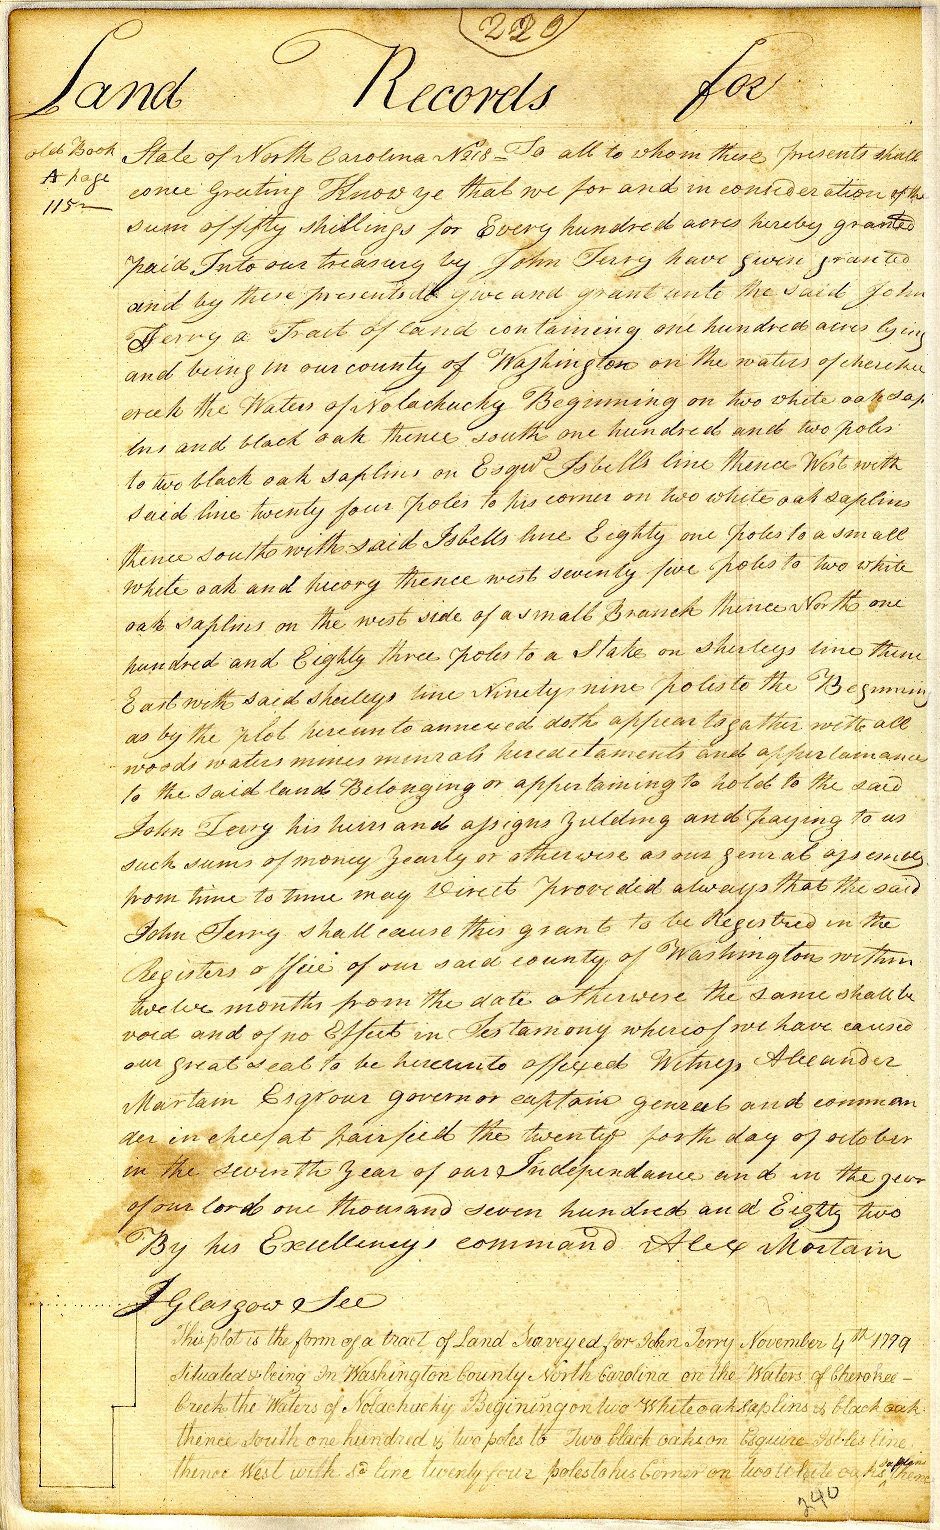 229
Land Records for
old Book
A page
115
State of North Carolina No 218 - To all to whom these presents shall
come Greeting Know ye that we for and in consideration of the
sum of fifty shillings for Every hundred acres hereby granted
paid Into our treasury by John Terry have given granted
and by these presents do give and grant unto the said John
Terry a Tract of land containing one hundred acres lying
and being in our county of Washington on the waters of cherekee
creek the Waters of Nolachucky Beginning on two white oak sap
lins and black oak thence south one hundred and two poles
to two black oak saplins on Esqurs Isbells line thence West with
said line twenty four poles to his corner on two white oak saplins
thence south with said Isbells line Eighty one poles to a small
white oak and hicory thence west seventy five poles to two white
oak saplins on the west side of a small Branch thence North one
hundred and Eighty three poles to a Stake on sherleys line thence
East with said sherleys line Ninety nine poles to the Beginning
as by the plot hereunto annexed doth appear togather with all
woods waters mines minrals hereditaments and appertainances
to the said land Belonging or appertaining to hold to the said
John Terry his heirs and assigns yielding and paying to us
such sums of money yearly or otherwise as our genral assembly
from time to time may Direct provided always that the said
John Terry shall cause this grant to be Registred in the
Registers office of our said county of Washington within
twelve months from the date otherwise the same shall be
void and of no Effect in Testamony whereof we have caused
our great seal to be hereunto affixed Witness Alexander
Martain Esqr our Governor captain genral and comman
der in cheef at fairfield the twenty forth day of october
in the seventh year of our Independance and in the year
of our lord one thousand seven hundred and Eighty two
By his Excellencys command Alex Martain
J Glasgow See
This plot is the form of a tract of Land Surveyed for John Terry November 4th 1779
Situated & being In Washington County North Carolina on the Waters of Cherokee -
Creek the Waters of Nolachucky Begining on two White oak saplins & black oak
thence South one hundred & two poles to Two black oaks on Esquire Isbles line
thence West with sd line twenty four poles to his Corner on two White oaks saplins thence
240